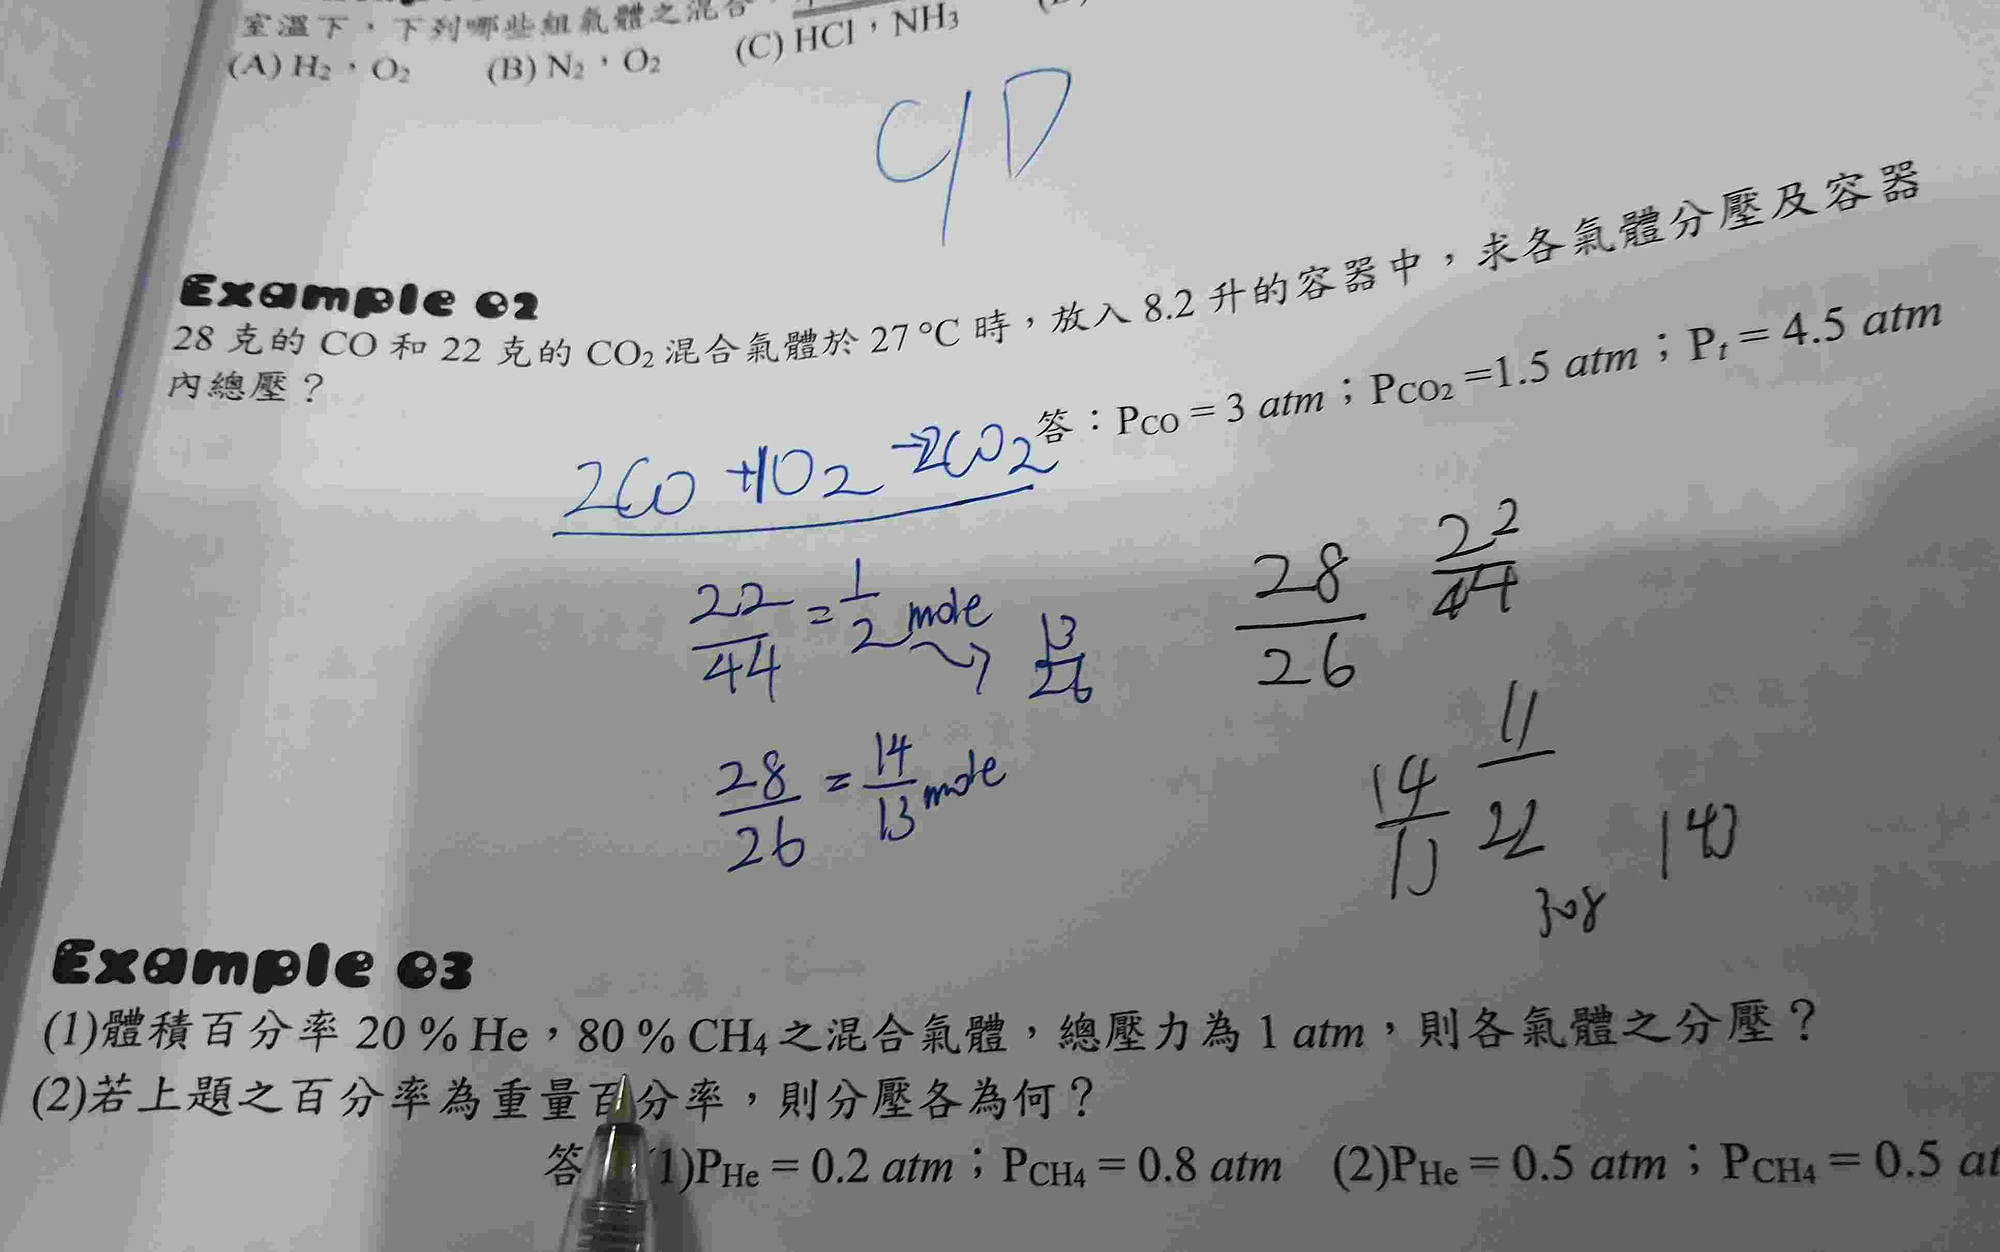 室溫下，下列哪些組氣體之混合
(A) H₂，O₂ (B) N₂，O₂ (C) HCl，NH₃
C/D
Example 02
28 克的 CO 和 22 克的 CO₂ 混合氣體於 27 °C 時，放入 8.2 升的容器中，求各氣體分壓及容器
內總壓？
答：PCO = 3 atm；PCO₂ =1.5 atm；Pt = 4.5 atm
2CO + 1O₂ → 2CO₂
22/44 = 1/2 mole → 13/26
28/26 22/44
28/26 = 14/13 mole
14/13 11/22 143
308
Example 03
(1)體積百分率 20 % He，80 % CH₄ 之混合氣體，總壓力為 1 atm，則各氣體之分壓？
(2)若上題之百分率為重量百分率，則分壓各為何？
答 (1)PHe = 0.2 atm；PCH₄ = 0.8 atm (2)PHe = 0.5 atm；PCH₄ = 0.5 at